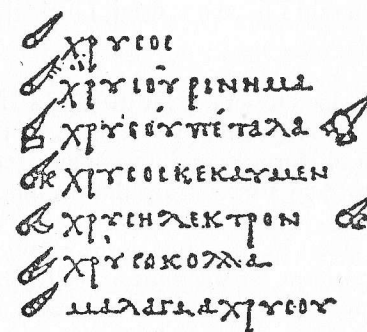 χρυσος
χρυσοῦ ρινημα
χρυσοῦ πέταλα
χρυσος κεκαυμεν
χρυσηλεκτρον
χρυσοκολλα
μαλαγμα χρυσου